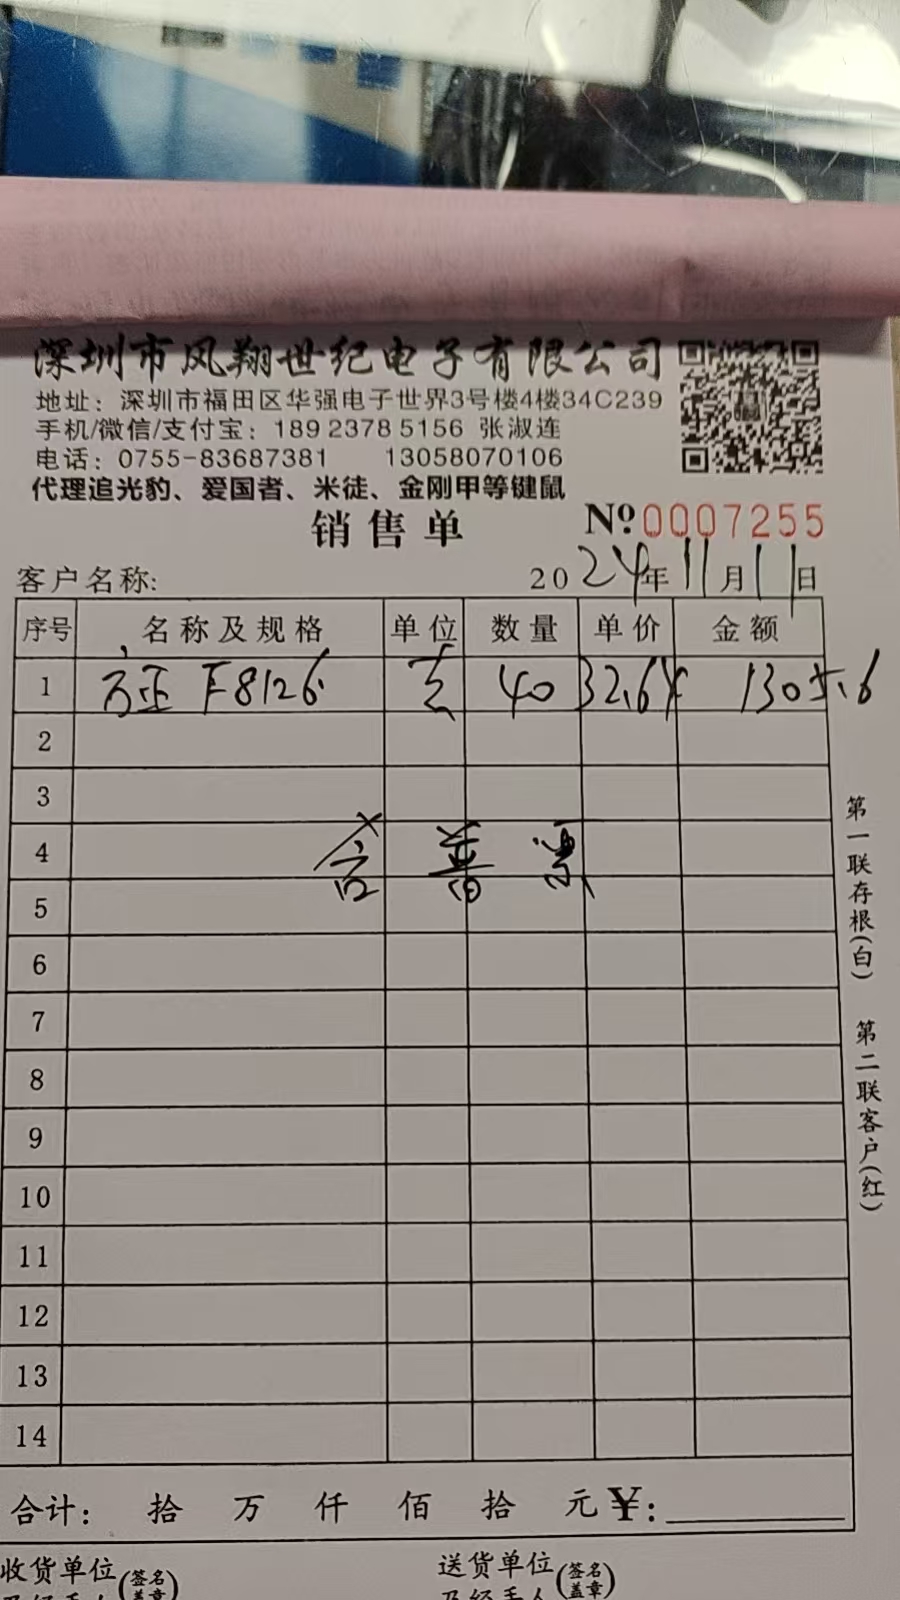 深圳市风翔世纪电子有限公司
地址：深圳市福田区华强电子世界3号楼4楼34C239
手机/微信/支付宝：189 2378 5156 张淑连
电话：0755-83687381 13058070106
代理追光豹、爱国者、米徒、金刚甲等键鼠
销售单 № 0007255
客户名称: 2024年11月11日
序号 名称及规格 单位 数量 单价 金额
1 方正 F8126 支 40 32.64 1305.6
2
3
4
含普票
5
6
7
8
9
10
11
12
13
14
合计： 拾 万 仟 佰 拾 元 ¥:
收货单位(签名盖章)
及经手人
送货单位(签名盖章)
及经手人
第一联存根(白) 第二联客户(红)